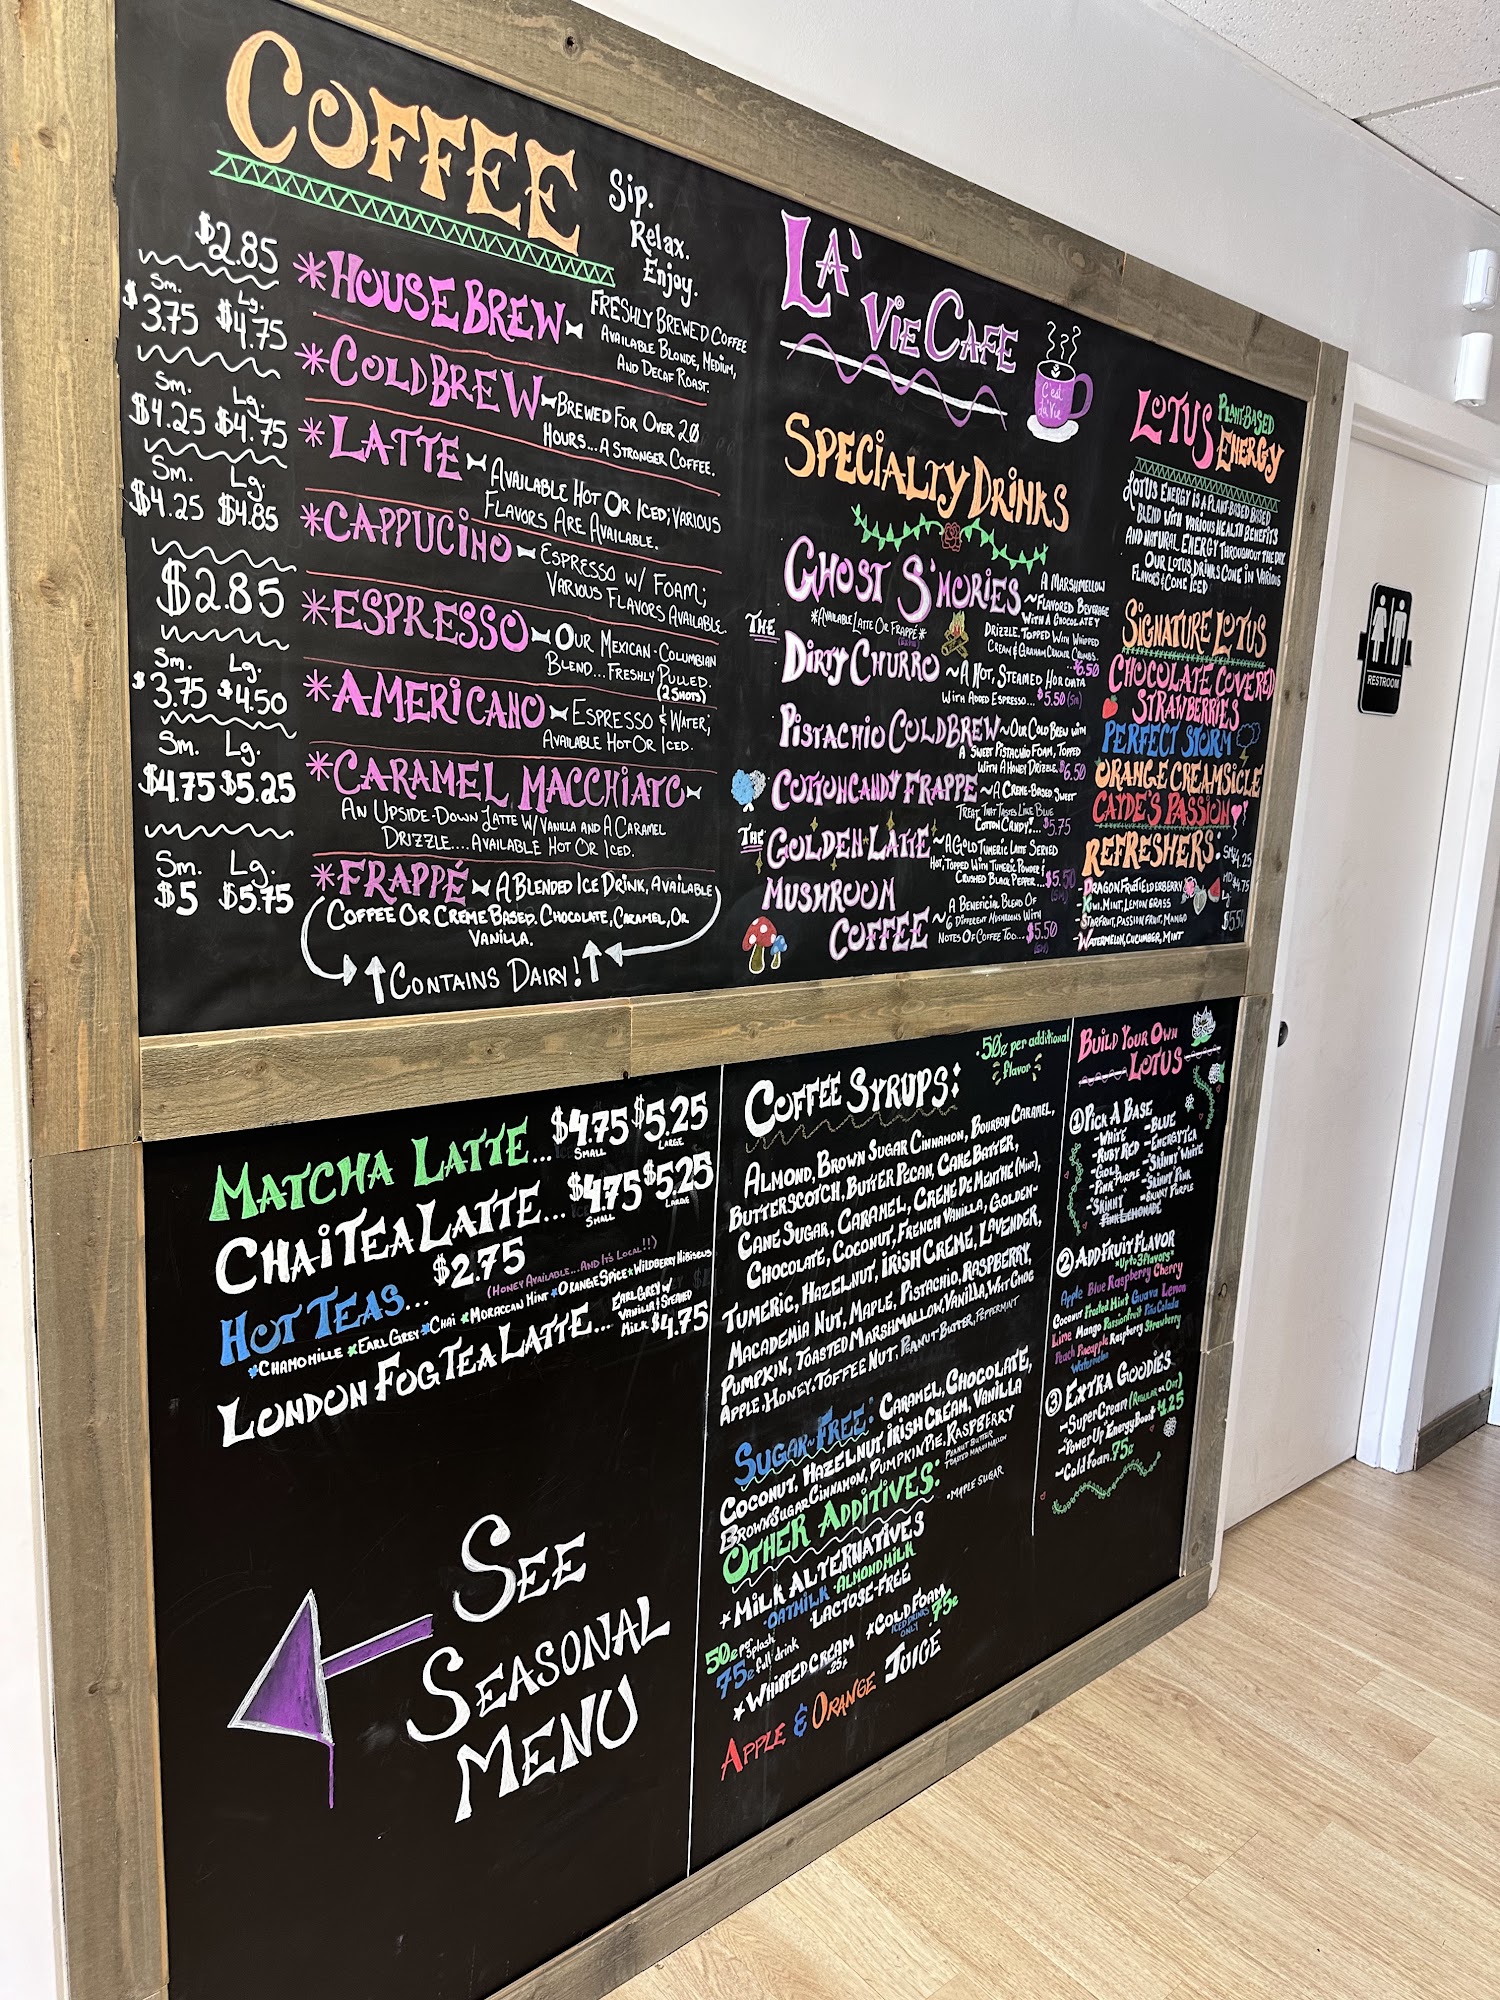 COFFEE
Sip.
Relax.
Enjoy.
$2.85
*HOUSE BREW
FRESHLY BREWED COFFEE
AVAILABLE BLONDE, MEDIUM,
AND DECAF ROAST.
Sm. Lg.
$3.75 $4.75
*COLD BREW
BREWED FOR OVER 20
HOURS...A STRONGER COFFEE.
Sm. Lg.
$4.25 $4.75
*LATTE
AVAILABLE HOT OR ICED; VARIOUS
FLAVORS ARE AVAILABLE.
Sm. Lg.
$4.25 $4.85
*CAPPUCINO
ESPRESSO W/ FOAM;
VARIOUS FLAVORS AVAILABLE.
$2.85
*ESPRESSO
OUR MEXICAN-COLUMBIAN
BLEND...FRESHLY PULLED.
(2 SHOTS)
Sm. Lg.
$3.75 $4.50
*AMERICANO
ESPRESSO & WATER;
AVAILABLE HOT OR ICED.
Sm. Lg.
$4.75 $5.25
*CARAMEL MACCHIATO
AN UPSIDE-DOWN LATTE W/ VANILLA AND A CARAMEL
DRIZZLE....AVAILABLE HOT OR ICED.
Sm. Lg.
$5 $5.75
*FRAPPÉ
A BLENDED ICE DRINK, AVAILABLE
COFFEE OR CRÉME BASED. CHOCOLATE, CARAMEL, OR
VANILLA.
CONTAINS DAIRY!
LA' VIE CAFE
C'est
La'Vie
SPECIALTY DRINKS
GHOST S'MORIES
*AVAILABLE LATTE OR FRAPPÉ*
A MARSHMELLOW
~FLAVORED BEVERAGE
WITH A CHOCOLATEY
DRIZZLE. TOPPED WITH WHIPPED
CREAM & GRAHAM CRACKER CRUMBS.
$6.50
THE
DIRTY CHURRO
~A HOT, STEAMED HORCHATA
WITH ADDED ESPRESSO... $5.50 (SM)
PISTACHIO COLD BREW
~OUR COLD BREW WITH
A SWEET PISTACHIO FOAM, TOPPED
WITH A HONEY DRIZZLE. $6.50
COTTON CANDY FRAPPE
~A CREME-BASED SWEET
TREAT THAT TASTES LIKE BLUE
COTTON CANDY!... $5.75
THE
GOLDEN LATTE
~A GOLD TUMERIC LATTE SERVED
HOT, TOPPED WITH TUMERIC POWDER &
CRUSHED BLACK PEPPER... $5.50
(SM)
MUSHROOM
COFFEE
A BENEFICIAL BLEND OF
~6 DIFFERENT MUSHROOMS WITH
NOTES OF COFFEE TOO... $5.50
(SM)
LOTUS PLANT-BASED
ENERGY
LOTUS ENERGY IS A PLANT-BASED BASED
BLEND WITH VARIOUS HEALTH BENEFITS
AND NATURAL ENERGY THROUGHOUT THE DAY.
OUR LOTUS DRINKS COME IN VARIOUS
FLAVORS & COME ICED
SIGNATURE LOTUS
CHOCOLATE COVERED
STRAWBERRIES
PERFECT STORM
ORANGE CREAMSICLE
CAYDE'S PASSION
REFRESHERS:
SM $4.25
-DRAGONFRUIT ELDERBERRY
MD $4.75
-KIWI, MINT, LEMON GRASS
LG
$5.50
-STARFRUIT, PASSIONFRUIT, MANGO
-WATERMELON, CUCUMBER, MINT
RESTROOM
MATCHA LATTE... $4.75 $5.25
SMALL LARGE
CHAI TEA LATTE... $4.75 $5.25
SMALL LARGE
HOT TEAS... $2.75
(HONEY AVAILABLE...AND IT'S LOCAL!!)
*CHAMOMILLE *EARL GREY *CHAI *MORACCAN MINT *ORANGE SPICE *WILDBERRY HIBISCUS
LONDON FOG TEA LATTE...
EARL GREY W/
VANILLA & STEAMED
MILK $4.75
SEE
SEASONAL
MENU
COFFEE SYRUPS:
.50¢ per additional
flavor
ALMOND, BROWN SUGAR CINNAMON, BOURBON CARAMEL,
BUTTERSCOTCH, BUTTER PECAN, CAKE BATTER,
CANE SUGAR, CARAMEL, CREME DE MENTHE (MINT),
CHOCOLATE, COCONUT, FRENCH VANILLA, GOLDEN-
TUMERIC, HAZELNUT, IRISH CREME, LAVENDER,
MACADEMIA NUT, MAPLE, PISTACHIO, RASPBERRY,
PUMPKIN, TOASTED MARSHMALLOW, VANILLA, WHT CHOC
APPLE, HONEY, TOFFEE NUT, PEANUT BUTTER, PEPPERMINT
SUGAR-FREE: CARAMEL, CHOCOLATE,
COCONUT, HAZELNUT, IRISH CREAM, VANILLA
BROWN SUGAR CINNAMON, PUMPKIN PIE, RASPBERRY
PEANUT BUTTER
TOASTED MARSHMALLOW
•MAPLE SUGAR
OTHER ADDITIVES:
*MILK ALTERNATIVES
•OATMILK •ALMONDMILK
•LACTOSE-FREE
50¢ per splash
75¢ full drink
*COLD FOAM
ICED DRINKS
ONLY 75¢
*WHIPPED CREAM
.25¢
APPLE & ORANGE JUICE
BUILD YOUR OWN
LOTUS
① PICK A BASE
-WHITE -BLUE
-RUBY RED -ENERGY TEA
-GOLD -SKINNY WHITE
-PINK PURPLE -SKINNY PINK
-SKINNY -SKINNY PURPLE
PINK LEMONADE
② ADD FRUIT FLAVOR
*Up to 3 flavors*
Apple Blue Raspberry Cherry
Coconut Frosted Mint Guava Lemon
Lime Mango Passionfruit Piña Colada
Peach Pineapple Raspberry Strawberry
Watermelon
③ EXTRA GOODIES
-SUPER CREAM (REGULAR OR OAT)
-"POWER UP" ENERGY BOOST $1.25
-COLD FOAM .75¢